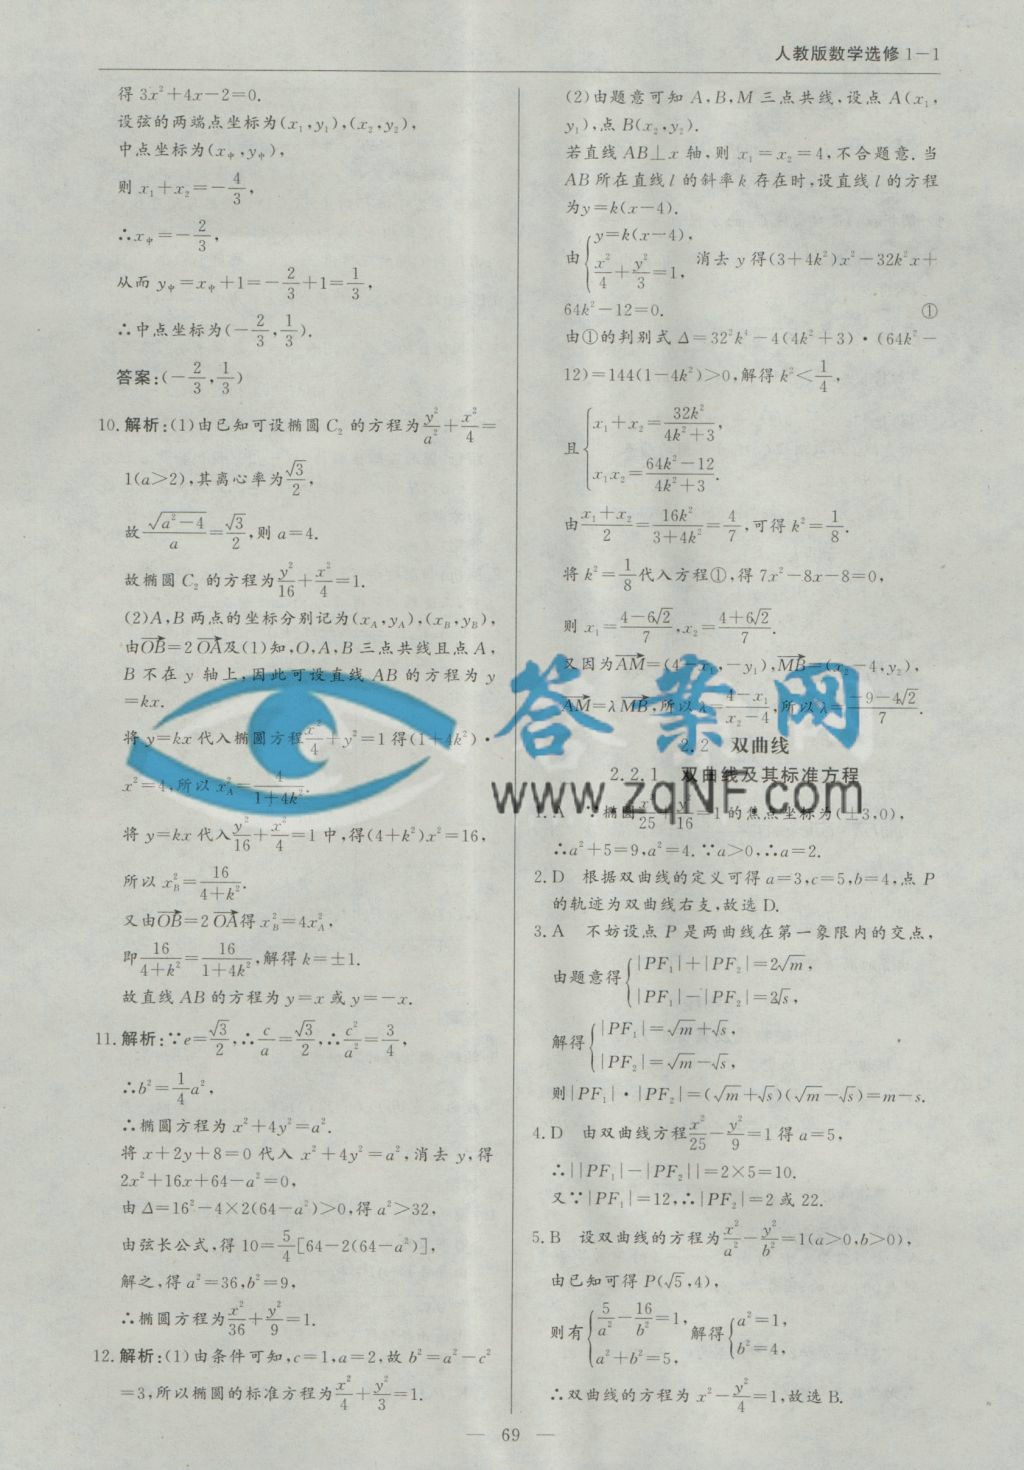 人教版数学选修1-1
得3x²+4x-2=0.
设弦的两端点坐标为(x₁,y₁),(x₂,y₂),
中点坐标为(x中,y中),
则x₁+x₂=-4/3,
∴x中=-2/3,
从而y中=x中+1=-2/3+1=1/3,
∴中点坐标为(-2/3,1/3).
答案:(-2/3,1/3)
10.解析:(1)由已知可设椭圆C₂的方程为y²/a²+x²/4=
1(a>2),其离心率为√3/2,
故√(a²-4)/a=√3/2,则a=4.
故椭圆C₂的方程为y²/16+x²/4=1.
(2)A,B两点的坐标分别记为(x_A,y_A),(x_B,y_B),
由OB→=2OA→及(1)知,O,A,B三点共线且点A,
B不在y轴上,因此可设直线AB的方程为y
=kx.
将y=kx代入椭圆方程x²/4+y²=1得(1+4k²)·
x²=4,所以x_A²=4/(1+4k²).
将y=kx代入y²/16+x²/4=1中,得(4+k²)x²=16,
所以x_B²=16/(4+k²).
又由OB→=2OA→得x_B²=4x_A²,
即16/(4+k²)=16/(1+4k²),解得k=±1.
故直线AB的方程为y=x或y=-x.
11.解析:∵e=√3/2,∴c/a=√3/2,∴c²/a²=3/4,
∴b²=1/4a²,
∴椭圆方程为x²+4y²=a².
将x+2y+8=0代入x²+4y²=a²,消去y,得
2x²+16x+64-a²=0,
由Δ=16²-4×2(64-a²)>0,得a²>32,
由弦长公式,得10=5/4[64-2(64-a²)],
解之,得a²=36,b²=9,
∴椭圆方程为x²/36+y²/9=1.
12.解析:(1)由条件可知,c=1,a=2,故b²=a²-c²
=3,所以椭圆的标准方程为x²/4+y²/3=1.
(2)由题意可知A,B,M三点共线,设点A(x₁,
y₁),点B(x₂,y₂).
若直线AB⊥x轴,则x₁=x₂=4,不合题意.当
AB所在直线l的斜率k存在时,设直线l的方程
为y=k(x-4).
由{y=k(x-4), x²/4+y²/3=1, 消去y得(3+4k²)x²-32k²x+
64k²-12=0. ①
由①的判别式Δ=32²k⁴-4(4k²+3)·(64k²-
12)=144(1-4k²)>0,解得k²<1/4,
且{x₁+x₂=32k²/(4k²+3), x₁x₂=(64k²-12)/(4k²+3).
由(x₁+x₂)/2=16k²/(3+4k²)=4/7,可得k²=1/8.
将k²=1/8代入方程①,得7x²-8x-8=0,
则x₁=(4-6√2)/7,x₂=(4+6√2)/7.
又因为AM→=(4-x₁,-y₁),MB→=(x₂-4,y₂),
AM→=λMB→,所以λ=(4-x₁)/(x₂-4),所以λ=(-9-4√2)/7.
2.2 双曲线
2.2.1 双曲线及其标准方程
1.A ∵椭圆x²/25+y²/16=1的焦点坐标为(±3,0),
∴a²+5=9,a²=4.∵a>0,∴a=2.
2.D 根据双曲线的定义可得a=3,c=5,b=4,点P
的轨迹为双曲线右支,故选D.
3.A 不妨设点P是两曲线在第一象限内的交点,
由题意得{|PF₁|+|PF₂|=2√m, |PF₁|-|PF₂|=2√s,
解得{|PF₁|=√m+√s, |PF₂|=√m-√s,
则|PF₁|·|PF₂|=(√m+√s)(√m-√s)=m-s.
4.D 由双曲线方程x²/25-y²/9=1得a=5,
∴||PF₁|-|PF₂||=2×5=10.
又∵|PF₁|=12,∴|PF₂|=2或22.
5.B 设双曲线的方程为x²/a²-y²/b²=1(a>0,b>0),
由已知可得P(√5,4),
则有{5/a²-16/b²=1, a²+b²=5, 解得{a²=1, b²=4,
∴双曲线的方程为x²-y²/4=1,故选B.
答案网
www.zqNF.com
— 69 —